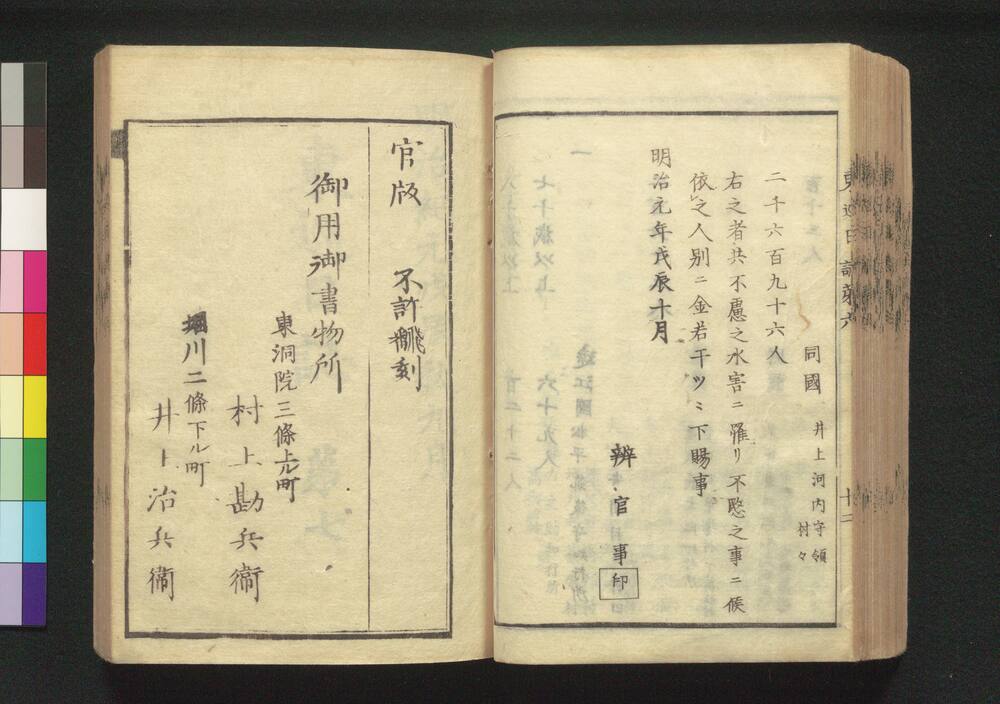 東巡日誌第六 十二
同國 井上河内守領
村々
二千六百九十六人
右之者共不慮之水害ニ罹リ不愍之事ニ候
依之人別ニ金若干ツヽ下賜事
明治元年戊辰十月
辨官事印
官版 不許飜刻
御用御書物所
東洞院三條上ル町
村上勘兵衛
堀川二條下ル町
井上治兵衛